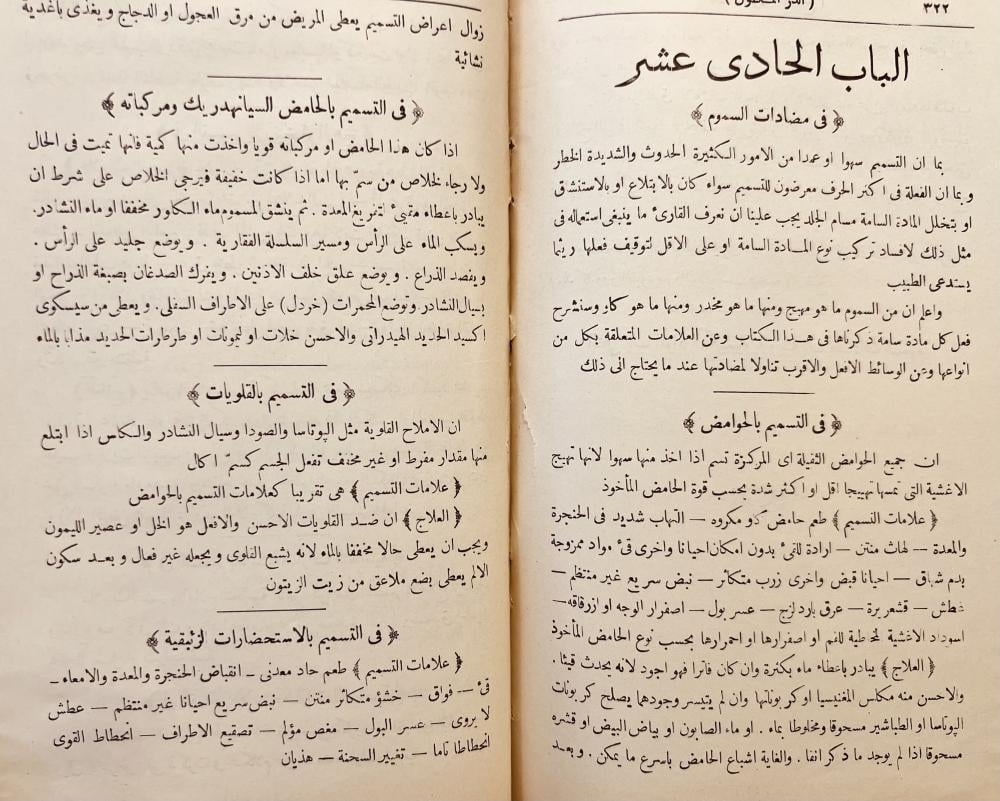 ٣٢٢
الباب الحادى عشر
﴿ فى مضادات السموم ﴾
بما ان التسميم سهوا او عمدا من الامور الكثيرة الحدوث والشديدة الخطر
وبما ان الفعلة فى اكثر الحرف معرضون للتسميم سواء كان بالابتلاع او بالاستنشاق
او بتخلل المادة السامة مسام الجلد يجب علينا ان نعرف القارئ ما ينبغى استعماله فى
مثل ذلك لافساد تركيب نوع المادة السامة او على الاقل لتوقيف فعلها ريثما
يستدعى الطبيب
واعلم ان من السموم ما هو مهيج ومنها ما هو مخدر ومنها ما هو كاو وسنشرح
فعل كل مادة سامة ذكرناها فى هذا الكتاب وعن العلامات المتعلقة بكل من
انواعها وعن الوسائط الافعل والاقرب تناولا لمضادتها عند ما يحتاج الى ذلك
﴿ فى التسميم بالحوامض ﴾
ان جميع الحوامض الثقيلة اى المركزة تسم اذا اخذ منها سهوا لانها تهيج
الاغشية التى تمسها تهييجا اقل او اكثر شدة بحسب قوة الحامض المأخوذ
﴿ علامات التسميم ﴾ طعم حامض كاو مكروه — التهاب شديد فى الحنجرة
والمعدة — لهاث منتن — ارادة للقئ بدون امكان احيانا واخرى قئ مواد ممزوجة
بدم شهاق — احيانا قبض واخرى زرب متكاثر — نبض سريع غير منتظم —
عطش — قشعريرة — عرق بارد لزج — عسر بول — اصفرار الوجه او ازرقاقه —
اسوداد الاغشية المخاطية للفم او اصفرارها او احمرارها بحسب نوع الحامض المأخوذ
﴿ العلاج ﴾ يبادر باعطاء ماء بكثرة وان كان فاترا فهو اجود لانه يحدث قيئا .
والاحسن منه مكلس المغنيسيا او كربوناتها وان لم يتيسر وجودهما يصلح كربونات
الپوتاسا او الطباشير مسحوقا ومخلوطا بماء . او ماء الصابون او بياض البيض او قشره
مسحوقا اذا لم يوجد ما ذكر انفا . والغاية اشباع الحامض باسرع ما يمكن . وبعد
زوال اعراض التسميم يعطى المريض من مرق العجول او الدجاج ويغذى باغدية
نشائية
﴿ فى التسميم بالحامض السيانهدريك ومركباته ﴾
اذا كان هذا الحامض او مركباته قويا واخذت منها كمية فانها تميت فى الحال
ولا رجاء لخلاص من سمّ بها اما اذا كانت خفيفة فيرجى الخلاص على شرط ان
يبادر باعطاء مقيئ لتفريغ المعدة . ثم ينشق المسموم ماء الكلور مخففا او ماء النشادر .
ويسكب الماء على الرأس ومسير السلسلة الفقارية . ويوضع جليد على الرأس .
ويفصد الذراع . ويوضع علق خلف الاذنين . ويفرك الصدغان بصبغة الذراح او
بسيال النشادر . وتوضع المحمرات ( خردل ) على الاطراف السفلى . ويعطى من سيسكوى
اكسيد الحديد الهيدراتى والاحسن خلات او ليمونات او طرطرات الحديد مذابا بالماء
﴿ فى التسميم بالقلويات ﴾
ان الاملاح القلوية مثل الپوتاسا والصودا وسيال النشادر والكلس اذا ابتلع
منها مقدار مفرط او غير مخفف تفعل الجسم كسمّ اكال
﴿ علامات التسميم ﴾ هى تقريبا كعلامات التسميم بالحوامض
﴿ العلاج ﴾ ان ضد القلويات الاحسن والافعل هو الخل او عصير الليمون
ويجب ان يعطى حالا مخففا بالماء لانه يشبع القلوى ويجعله غير فعال وبعد سكون
الالم يعطى بضع ملاعق من زيت الزيتون
﴿ فى التسميم بالاستحضارات الزئبقية ﴾
﴿ علامات التسميم ﴾ طعم حاد معدنى — انقباض الحنجرة والمعدة والامعاء —
قئ — فواق — خشؤ متكاثر منتن — نبض سريع احيانا غير منتظم — عطش
لا يروى — عسر البول — مغص مؤلم — تصقيع الاطراف — انحطاط القوى
انحطاطا تاما — تغيير السحنة — هذيان